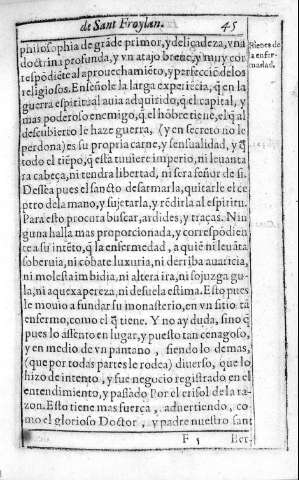 de Sant Froylan. 45
philosophia de grãde primor, y deligadeza, vna
doctrina profunda, y vn atajo breue, y muy cor
respõdiẽte al aprouechamiẽto, y perfecciõ de los
religiosos. Enseñole la larga experiẽcia, q̃ en la
guerra espiritual auia adquirido, q̃ el capital, y
mas poderoso enemigo, q̃ el hõbre tiene, el q̃ al
descubierto le haze guerra, (y en secreto no le
perdona) es su propria carne, y sensualidad, y q̃
todo el tiẽpo, q̃ esta tuuiere imperio, ni leuanta
ra cabeça, ni tendra libertad, ni sera señor de si.
Dessea pues el sancto desarmarla, quitarle el ce
ptro de la mano, y sujetarla, y rẽdirla al espiritu.
Para esto procura buscar, ardides, y traças. Nin
guna halla mas proporcionada, y correspõdien
te a su intẽto, q̃ la enfermedad, a quiẽ ni leuãta
soberuia, ni cõbate luxuria, ni derriba auaricia,
ni molesta imbidia, ni altera ira, ni sojuzga gu-
la, ni aquexa pereza, ni desuela estima. Esto pues
le mouio a fundar su monasterio, en vn sitio tã
enfermo, como el q̃ tiene. Y no ay duda, sino q̃
pues lo assento en lugar, y puesto tan cenagoso,
y en medio de vn pantano, siendo lo demas,
(que por todas partes le rodea) diuerso, que lo
hizo de intento, y fue negocio registrado en el
entendimiento, y passado Por el crisol de la ra-
zon. Esto tiene mas fuerça, aduertiendo, co-
mo el glorioso Doctor, y padre nuestro sant
F 5 Ber-
Bienes de
la enfer-
medad.